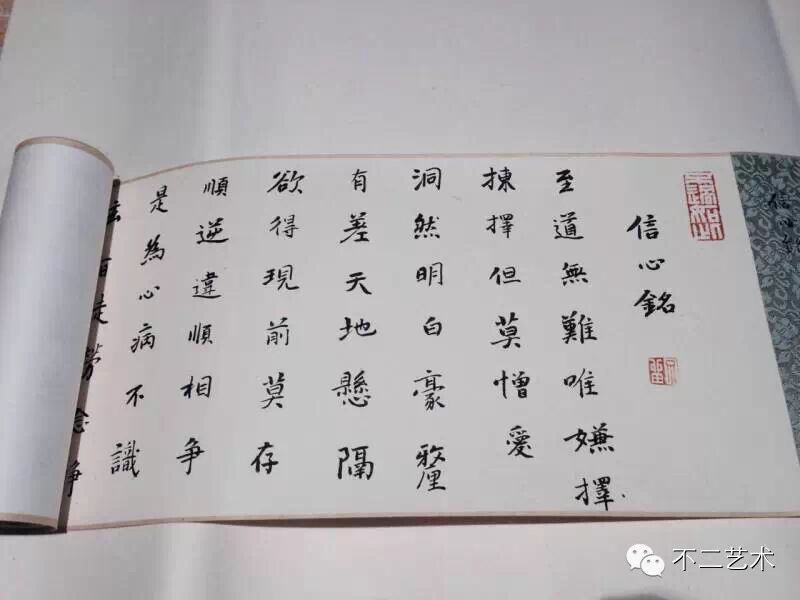 信心
信心銘
至道無難唯嫌擇、
揀擇但莫憎愛
洞然明白豪釐
有差天地懸隔
欲得現前莫存
順逆違順相争
是為心病不識
勞念
不二艺术